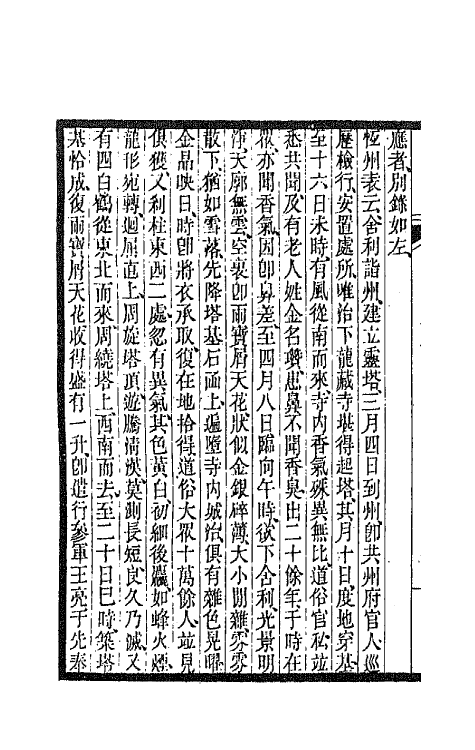 應者別錄如左
恆州表云舍利詣州建立靈塔三月四日到州卽共州府官人巡
歷檢行安置處所唯治下龍藏寺堪得起塔其月十日度地穿基
至十六日未時有風從南而來寺內香氣殊異無比道俗官私並
悉共聞及有老人姓金名瓚患鼻不聞香臭出二十餘年于時在
衆亦聞香氣因卽鼻差至四月八日臨向午時欲下舍利光景明
淨天廓無雲空裏卽雨寶屑天花狀似金銀碎薄大小間雜雰雰
散下猶如雪落先降塔基石函上遍墮寺內城治俱有雜色晃曜
金晶映日時卽將衣承取復在地拾得道俗大衆十萬餘人並見
俱獲又刹柱東西二處忽有異氣其色黃白初細後麤如蜂火煙
龍形宛轉迴屈直上周旋塔頂遊騰清漢莫測長短良久乃滅又
有四白鶴從東北而來周繞塔上西南而去至二十日巳時築塔
基恰成復雨寶屑天花收得盛有一升卽遣行參軍王亮于先奉